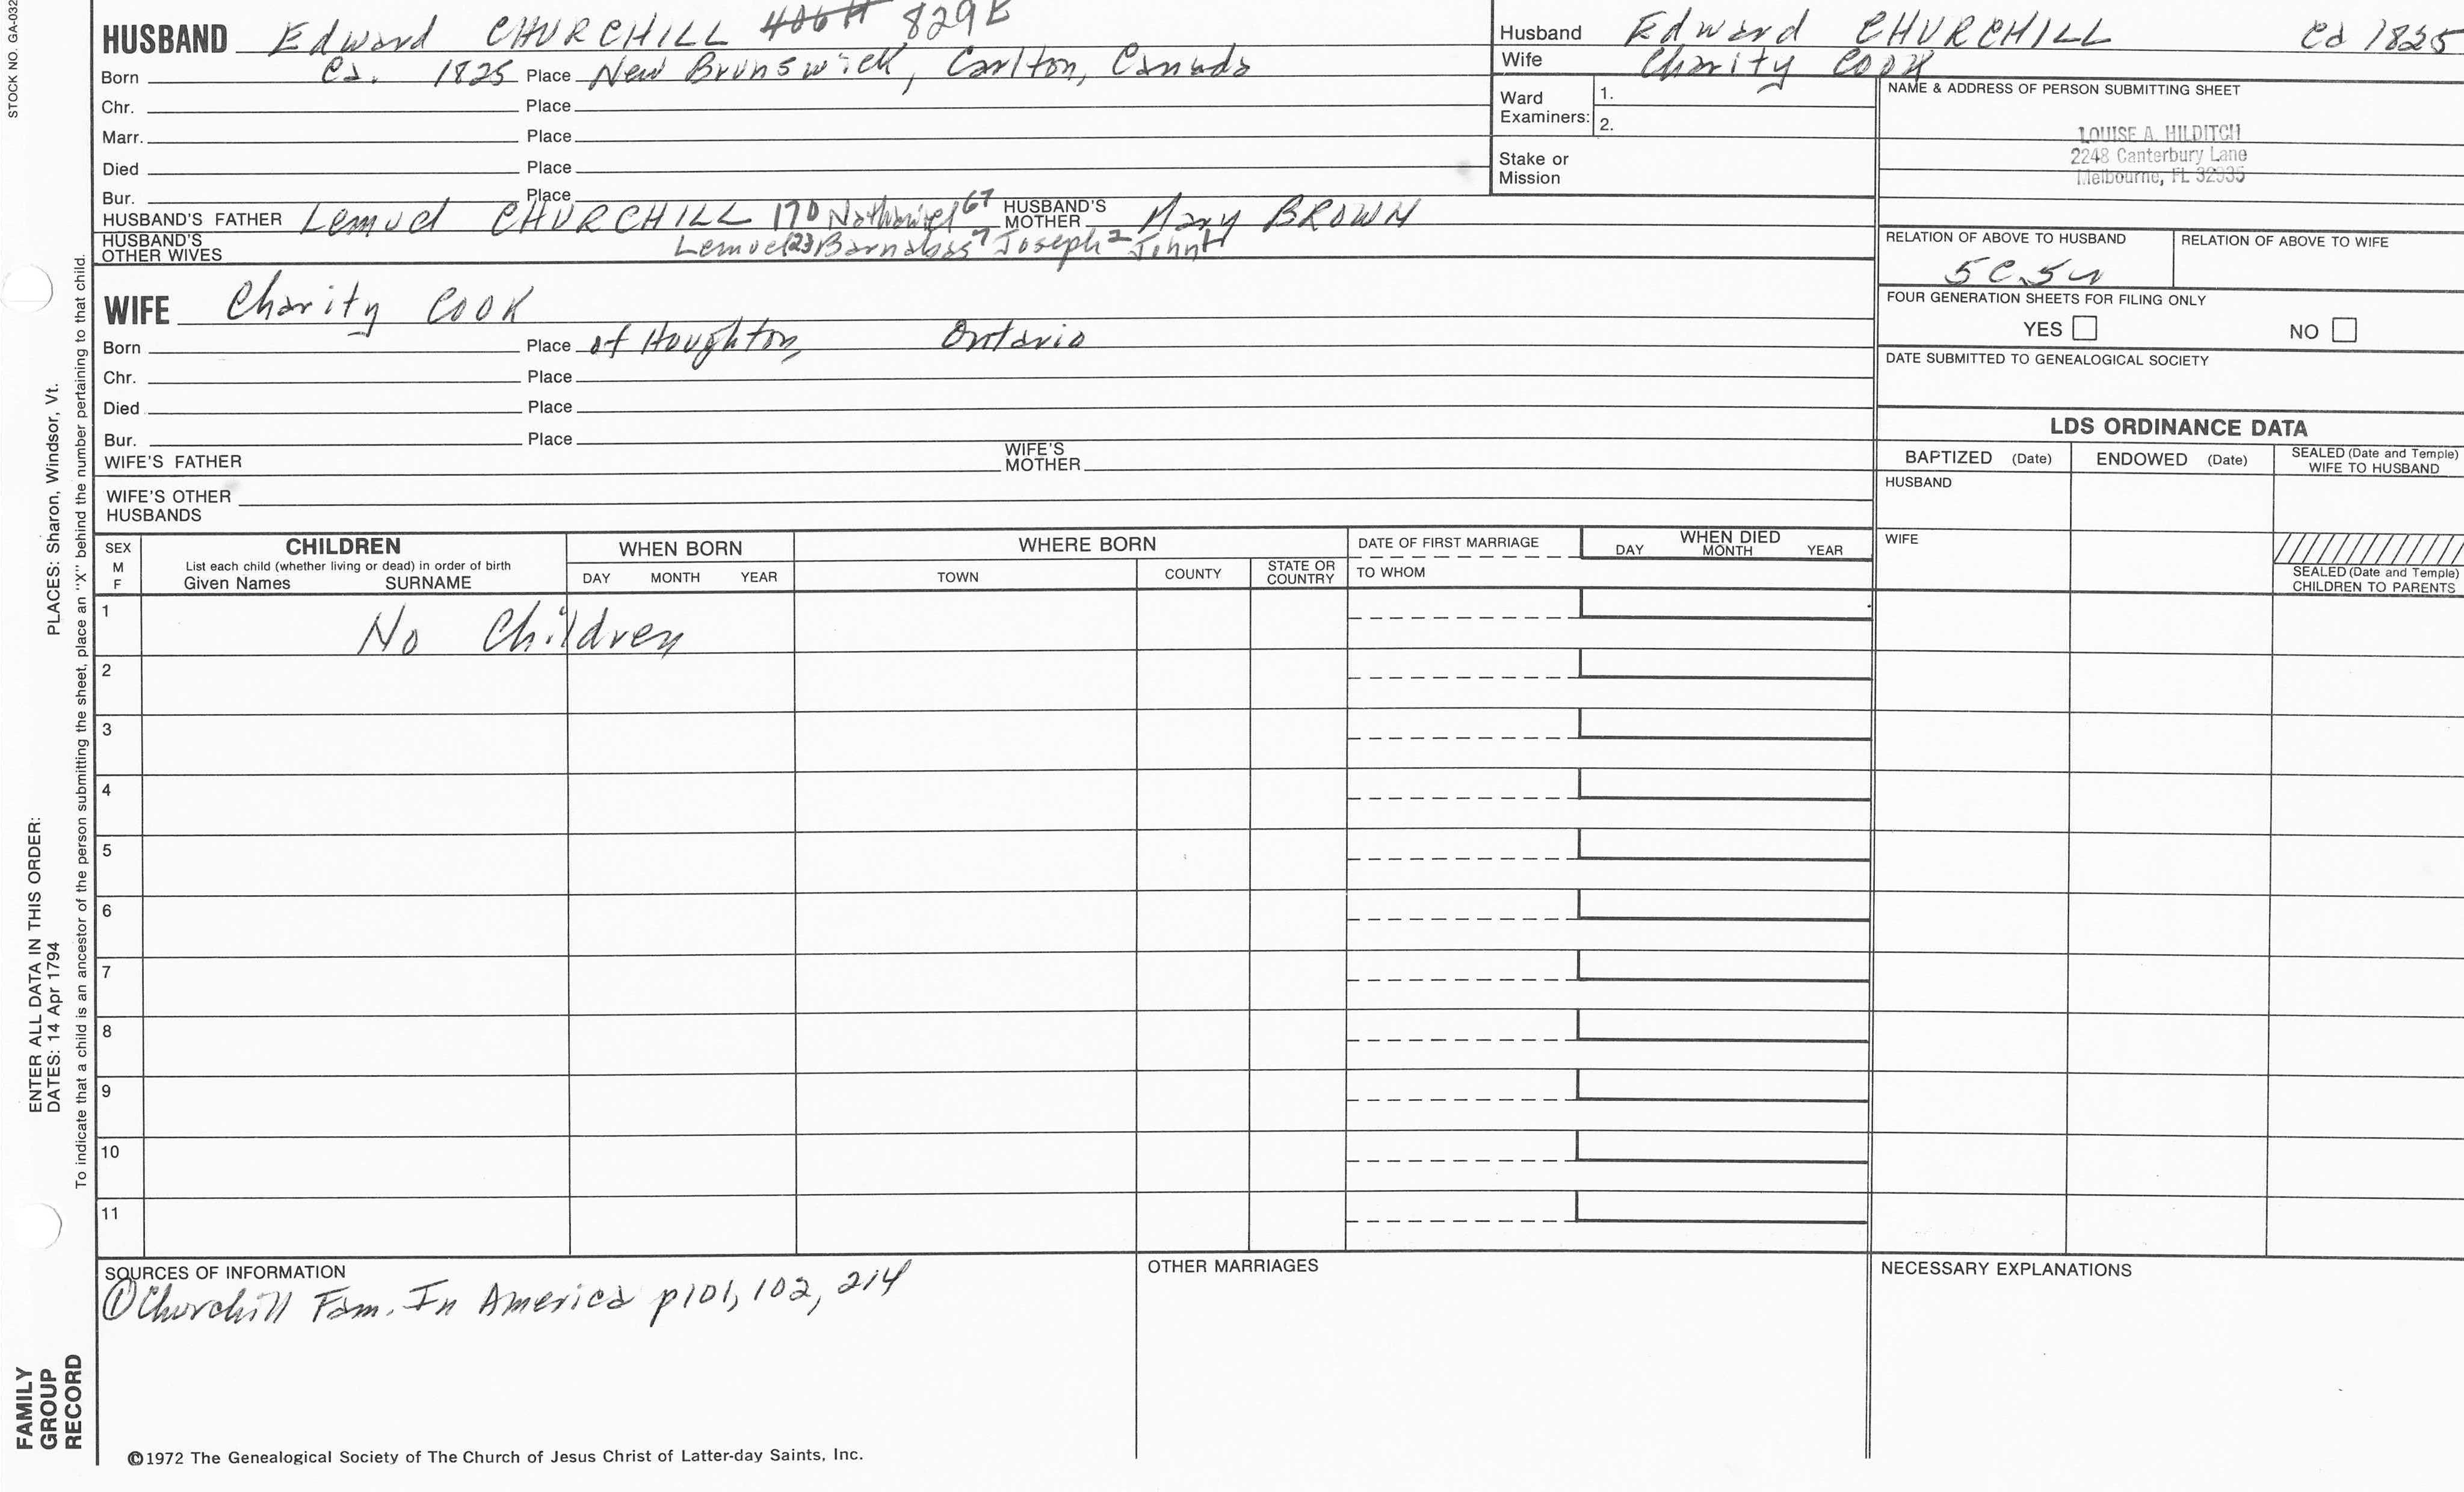 STOCK NO. GA-032
HUSBAND Edward CHURCHILL 829B
Born Ca. 1825 Place New Brunswick, Carlton, Canada
Chr. Place
Marr. Place
Died Place
Bur. Place
HUSBAND'S FATHER Lemuel CHURCHILL 170 Nathaniel 67 HUSBAND'S MOTHER Mary BROWN
HUSBAND'S OTHER WIVES Lemuel 23 Barnabas 7 Joseph 2 John 1
WIFE Charity COOK
Born Place of Houghton, Ontario
Chr. Place
Died Place
Bur. Place
WIFE'S FATHER WIFE'S MOTHER
WIFE'S OTHER HUSBANDS
Husband Edward CHURCHILL Ca 1825
Wife Charity COOK
Ward Examiners: 1.
2.
Stake or Mission
NAME & ADDRESS OF PERSON SUBMITTING SHEET
LOUISE A. HILDITCH
2248 Canterbury Lane
Melbourne, FL 32935
RELATION OF ABOVE TO HUSBAND RELATION OF ABOVE TO WIFE
5C.5r
FOUR GENERATION SHEETS FOR FILING ONLY
YES NO
DATE SUBMITTED TO GENEALOGICAL SOCIETY
LDS ORDINANCE DATA
BAPTIZED (Date) ENDOWED (Date) SEALED (Date and Temple) WIFE TO HUSBAND
HUSBAND
WIFE
SEALED (Date and Temple) CHILDREN TO PARENTS
SEX M F
CHILDREN
List each child (whether living or dead) in order of birth
Given Names SURNAME
WHEN BORN
DAY MONTH YEAR
WHERE BORN
TOWN COUNTY STATE OR COUNTRY
DATE OF FIRST MARRIAGE
TO WHOM
WHEN DIED
DAY MONTH YEAR
1 No Children
2
3
4
5
6
7
8
9
10
11
SOURCES OF INFORMATION
① Churchill Fam. In America p101, 102, 214
OTHER MARRIAGES
NECESSARY EXPLANATIONS
©1972 The Genealogical Society of The Church of Jesus Christ of Latter-day Saints, Inc.
FAMILY GROUP RECORD
ENTER ALL DATA IN THIS ORDER:
DATES: 14 Apr 1794
PLACES: Sharon, Windsor, Vt.
To indicate that a child is an ancestor of the person submitting the sheet, place an "X" behind the number pertaining to that child.